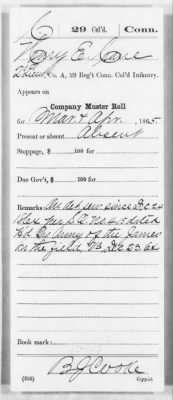 C 29 Col'd. Conn.
E.
2 Lieut, Co. A, 29 Reg't Conn. Col'd Infantry.
Appears on
Company Muster Roll
for Mar & Apr, 1865
Present or absent Absent
Stoppage, $ 100 for
Due Gov't, $ 100 for
Remarks: On det ser since Dec 24
1864 per S.O. No. dated
Hd Qrs Army of the James
in the field, Va Dec 23 64
Book mark:
B J Cooke
(858) Copyist.